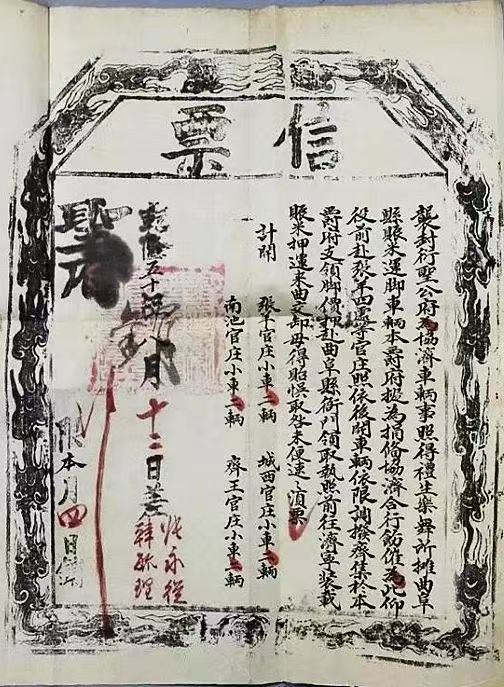 信票
襲封衍聖公府為協濟車輛事照得禮生樂舞所攤曲阜
縣賑米運脚車輛本爵府擬為捐俻協濟合行飭催為此仰
役前赴張羊四處等官庄照依後開車輛依限調撥齊集於本
爵府支領脚價即赴曲阜縣衙門領取執照前往濟寧装載
賑米押運来曲交卸毋得貽悞取咎未便速〻須票
計開
張羊官庄小車二輛 城西官庄小車二輛
南池官庄小車二輛 齊王官庄小車二輛
乾隆五十 月十二日差
張永
韓振理
限本月四日銷